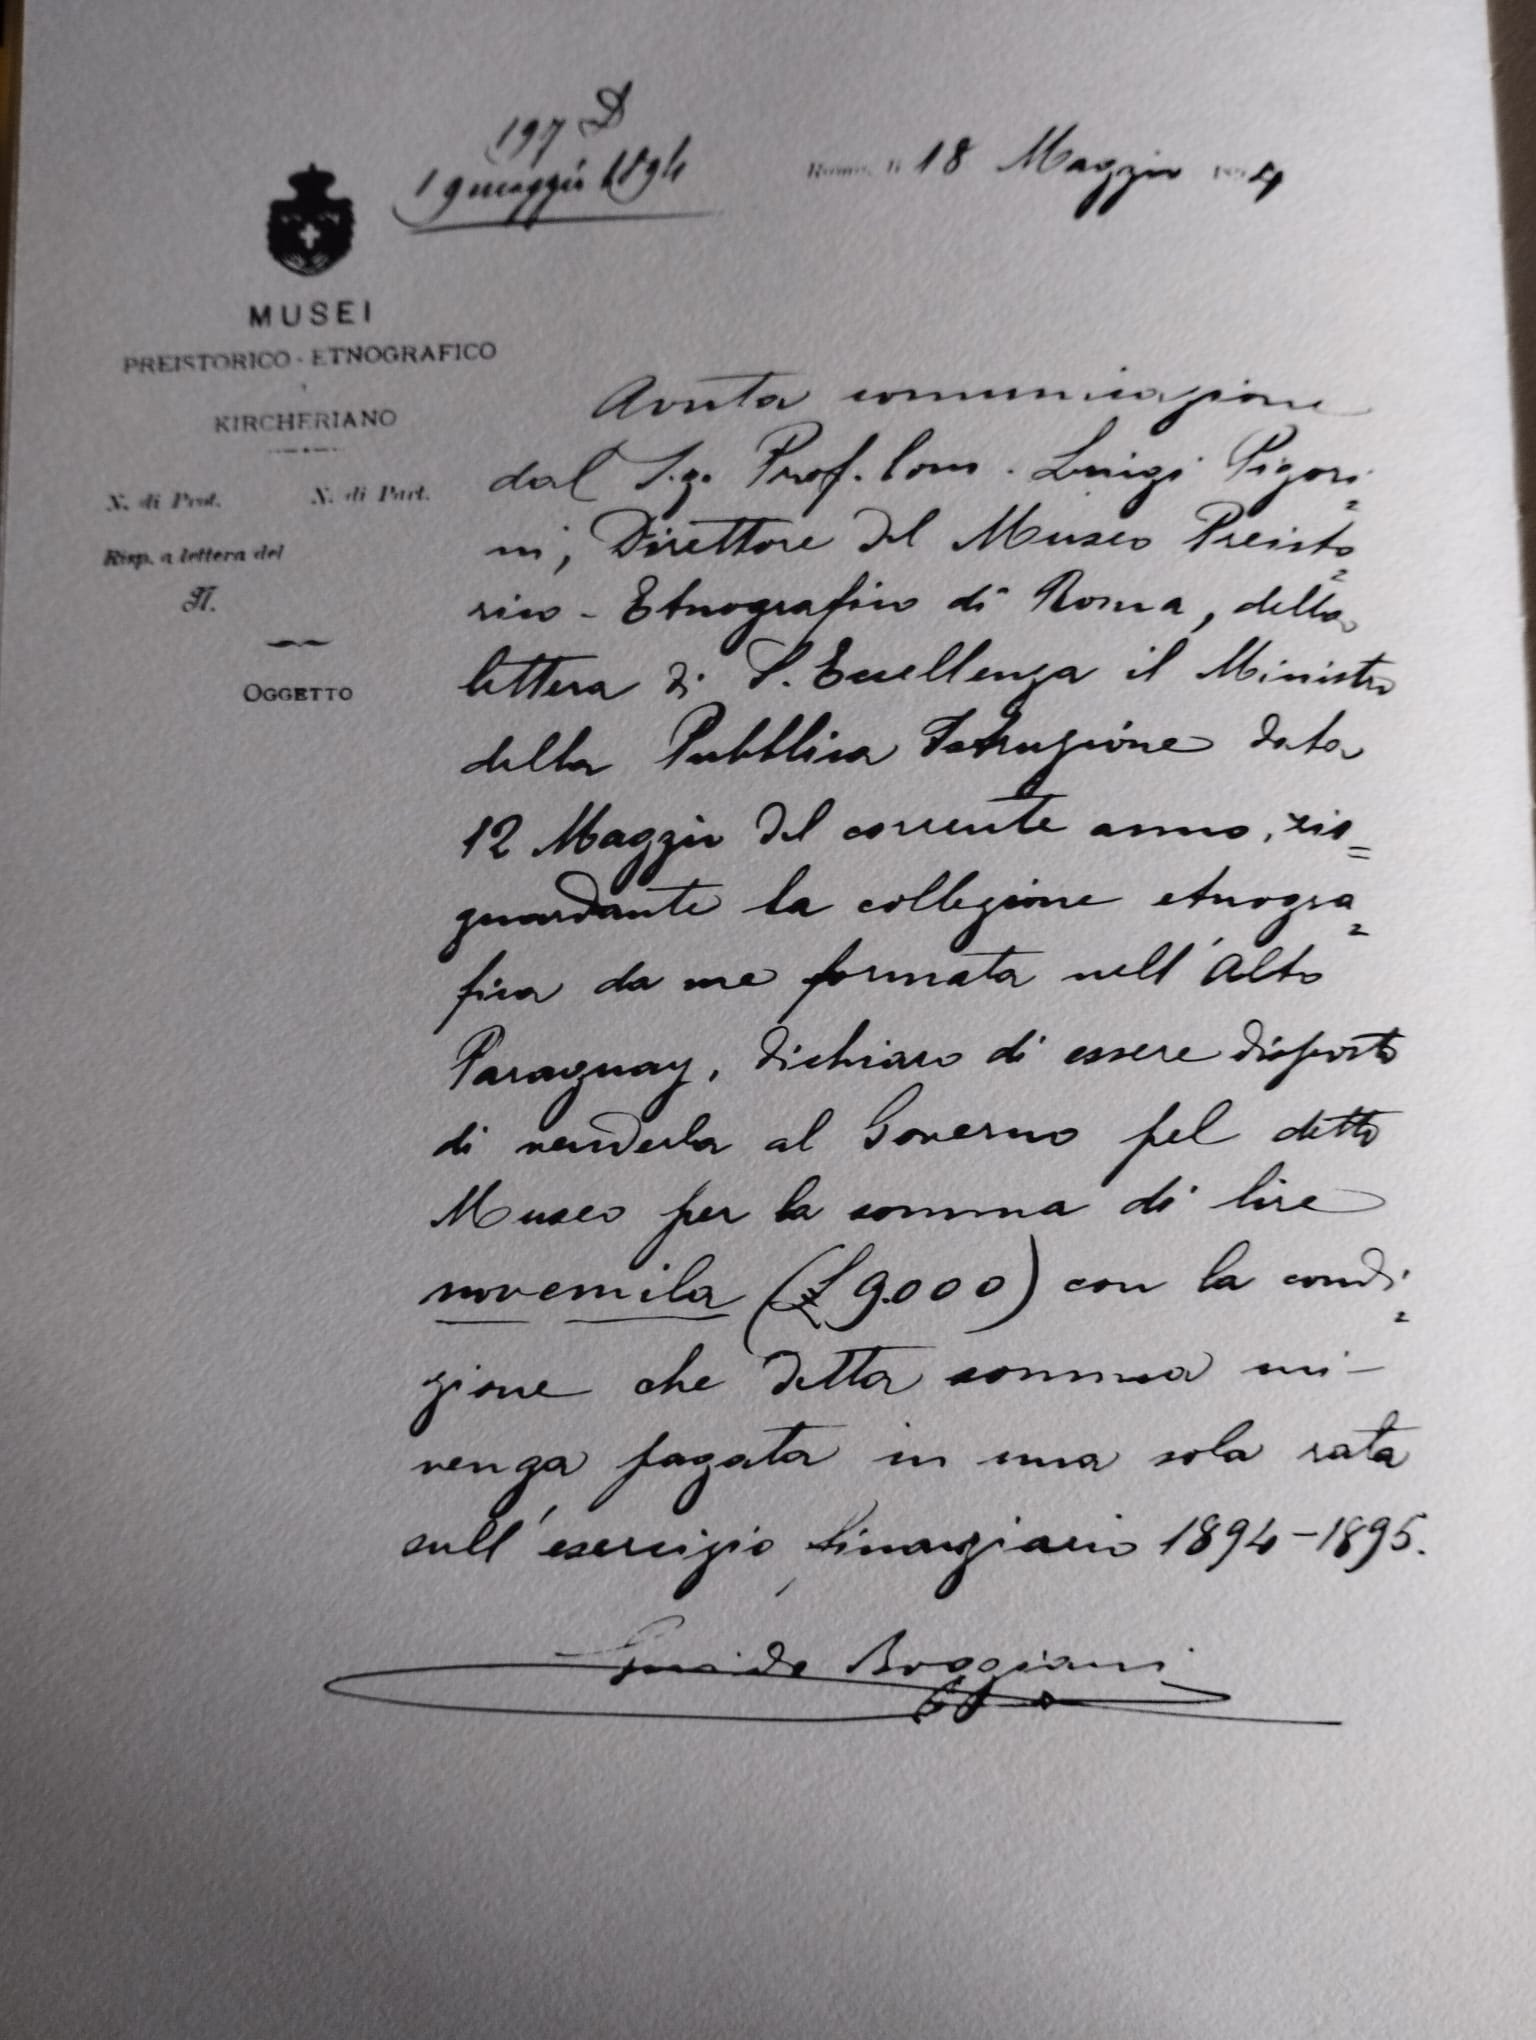 197 D
19 maggio 1894
Roma, li 18 Maggio 1894
MUSEI
PREISTORICO-ETNOGRAFICO
KIRCHERIANO
N. di Prot. N. di Part.
Risp. a lettera del
N.
OGGETTO
Avuta comunicazione
dal S.g. Prof. Com. Luigi Pigori=
ni, Direttore del Museo Preisto=
rico-Etnografico di Roma, della
lettera di S. Eccellenza il Ministro
della Pubblica Istruzione data
12 Maggio del corrente anno, ris=
guardante la collezione etnogra=
fica da me formata nell'Alto
Paraguay, dichiaro di essere disposto
di venderla al Governo pel detto
Museo per la somma di lire
novemila (£ 9.000) con la condi=
zione che detta somma mi
venga pagata in una sola rata
sull'esercizio finanziario 1894-1895.
Guido Boggiani